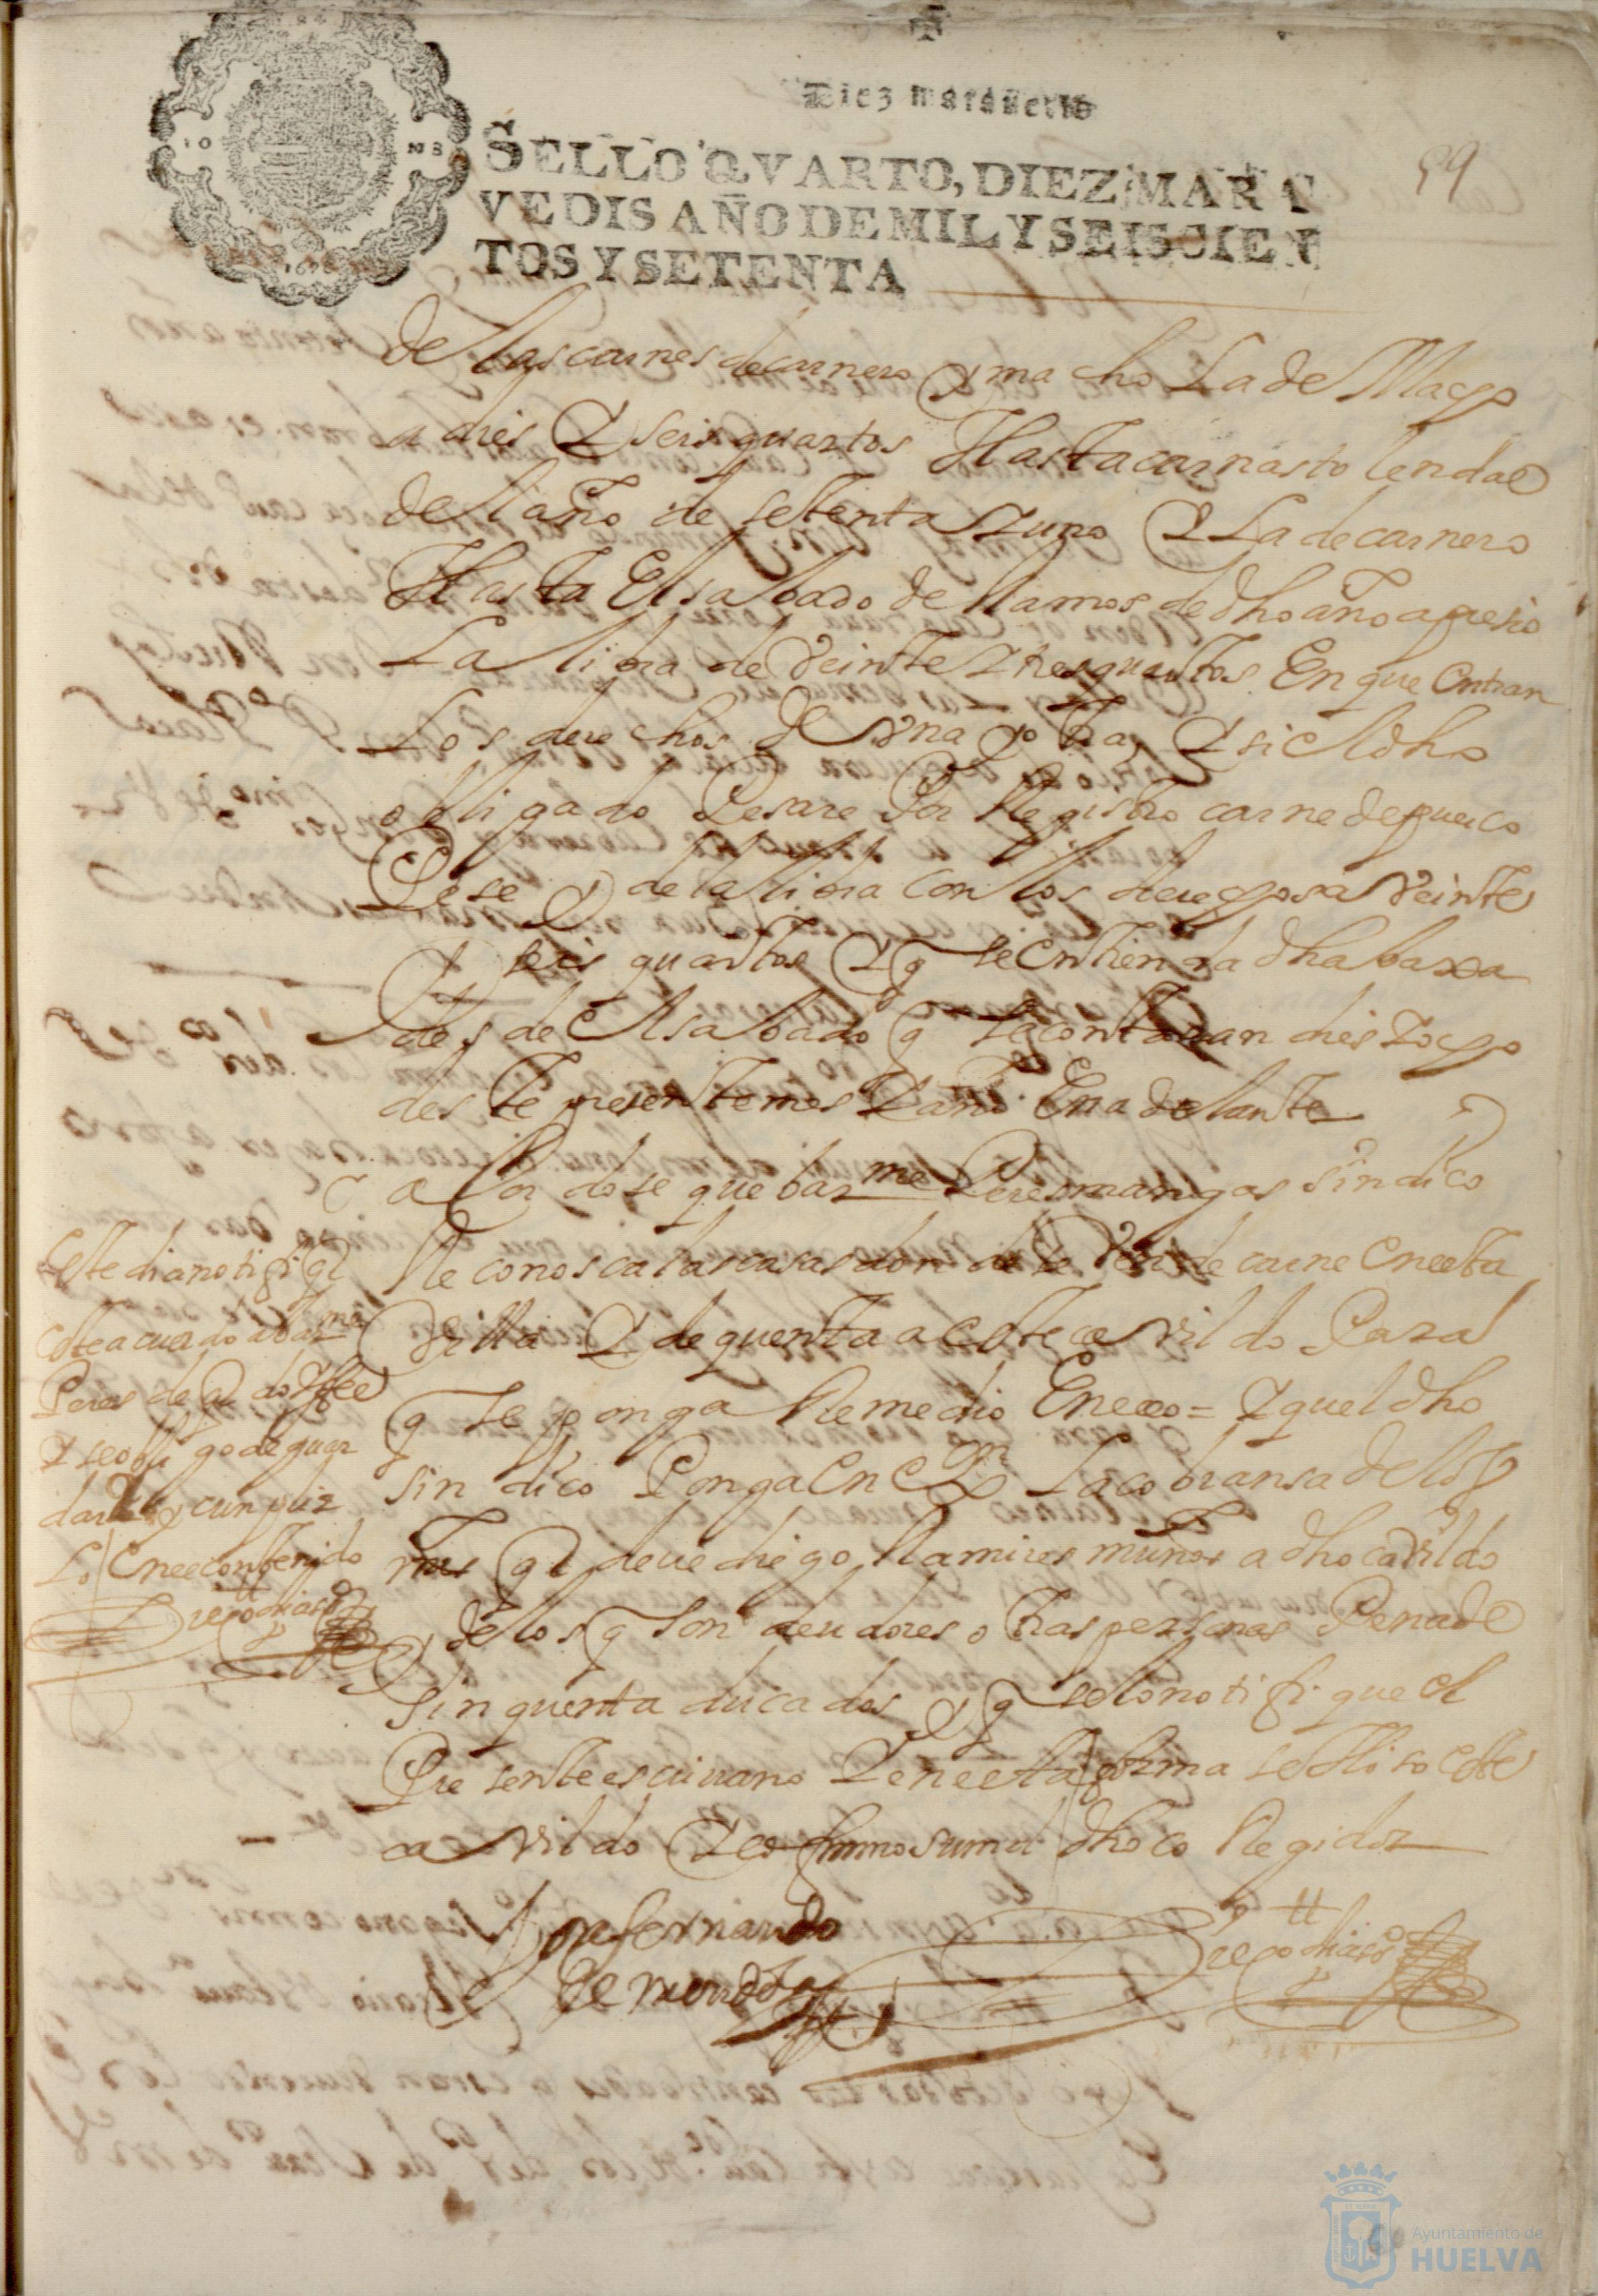 Diez marauedis
SELLO QVARTO, DIEZ MARA
VEDIS AÑO DE MIL Y SEISCIEN
TOS Y SETENTA
59
de las carnes de carnero y macho la de Macho
a dies y seis quartos Hasta carnastolendas
del año de setenta y uno y la de carnero
Hasta El sabado de Ramos de dho año a presio
La libra de veinte y tres quartos En que Entran
Los derechos de una y otra, y si el dho
obligado Pesare Por Registro carne de puerco
Pese de la libra con los derechos a veinte
y seis quartos y q se Entienda dha baxa
desde El sabado q se contaran dies y ocho
deste presente mes y año En adelante
acordose que barme Peres mangas sindico
Reconosca las casas donde se Vende carne en esta
Villa y de quenta a este cavildo Para
q se ponga Remedio En eso = y que el dho
sindico Ponga en La cobransa de los
mrs q deue diego Ramires muños a dho cavildo
y de los q son deudores otras personas Pena de
sinquenta ducados y q se lo notifique el
Presente escriuano y en esta forma se Hiso este
cavildo y lo firmo su md dho co Regidor
Este dia notifiq
este acuerdo a barme
Peres de q doy ffee
y se obligo de guar
dar y cunplir
Lo en el contenido
Diego dias
Don fernando
de
Diego dias
Ayuntamiento de
HUELVA